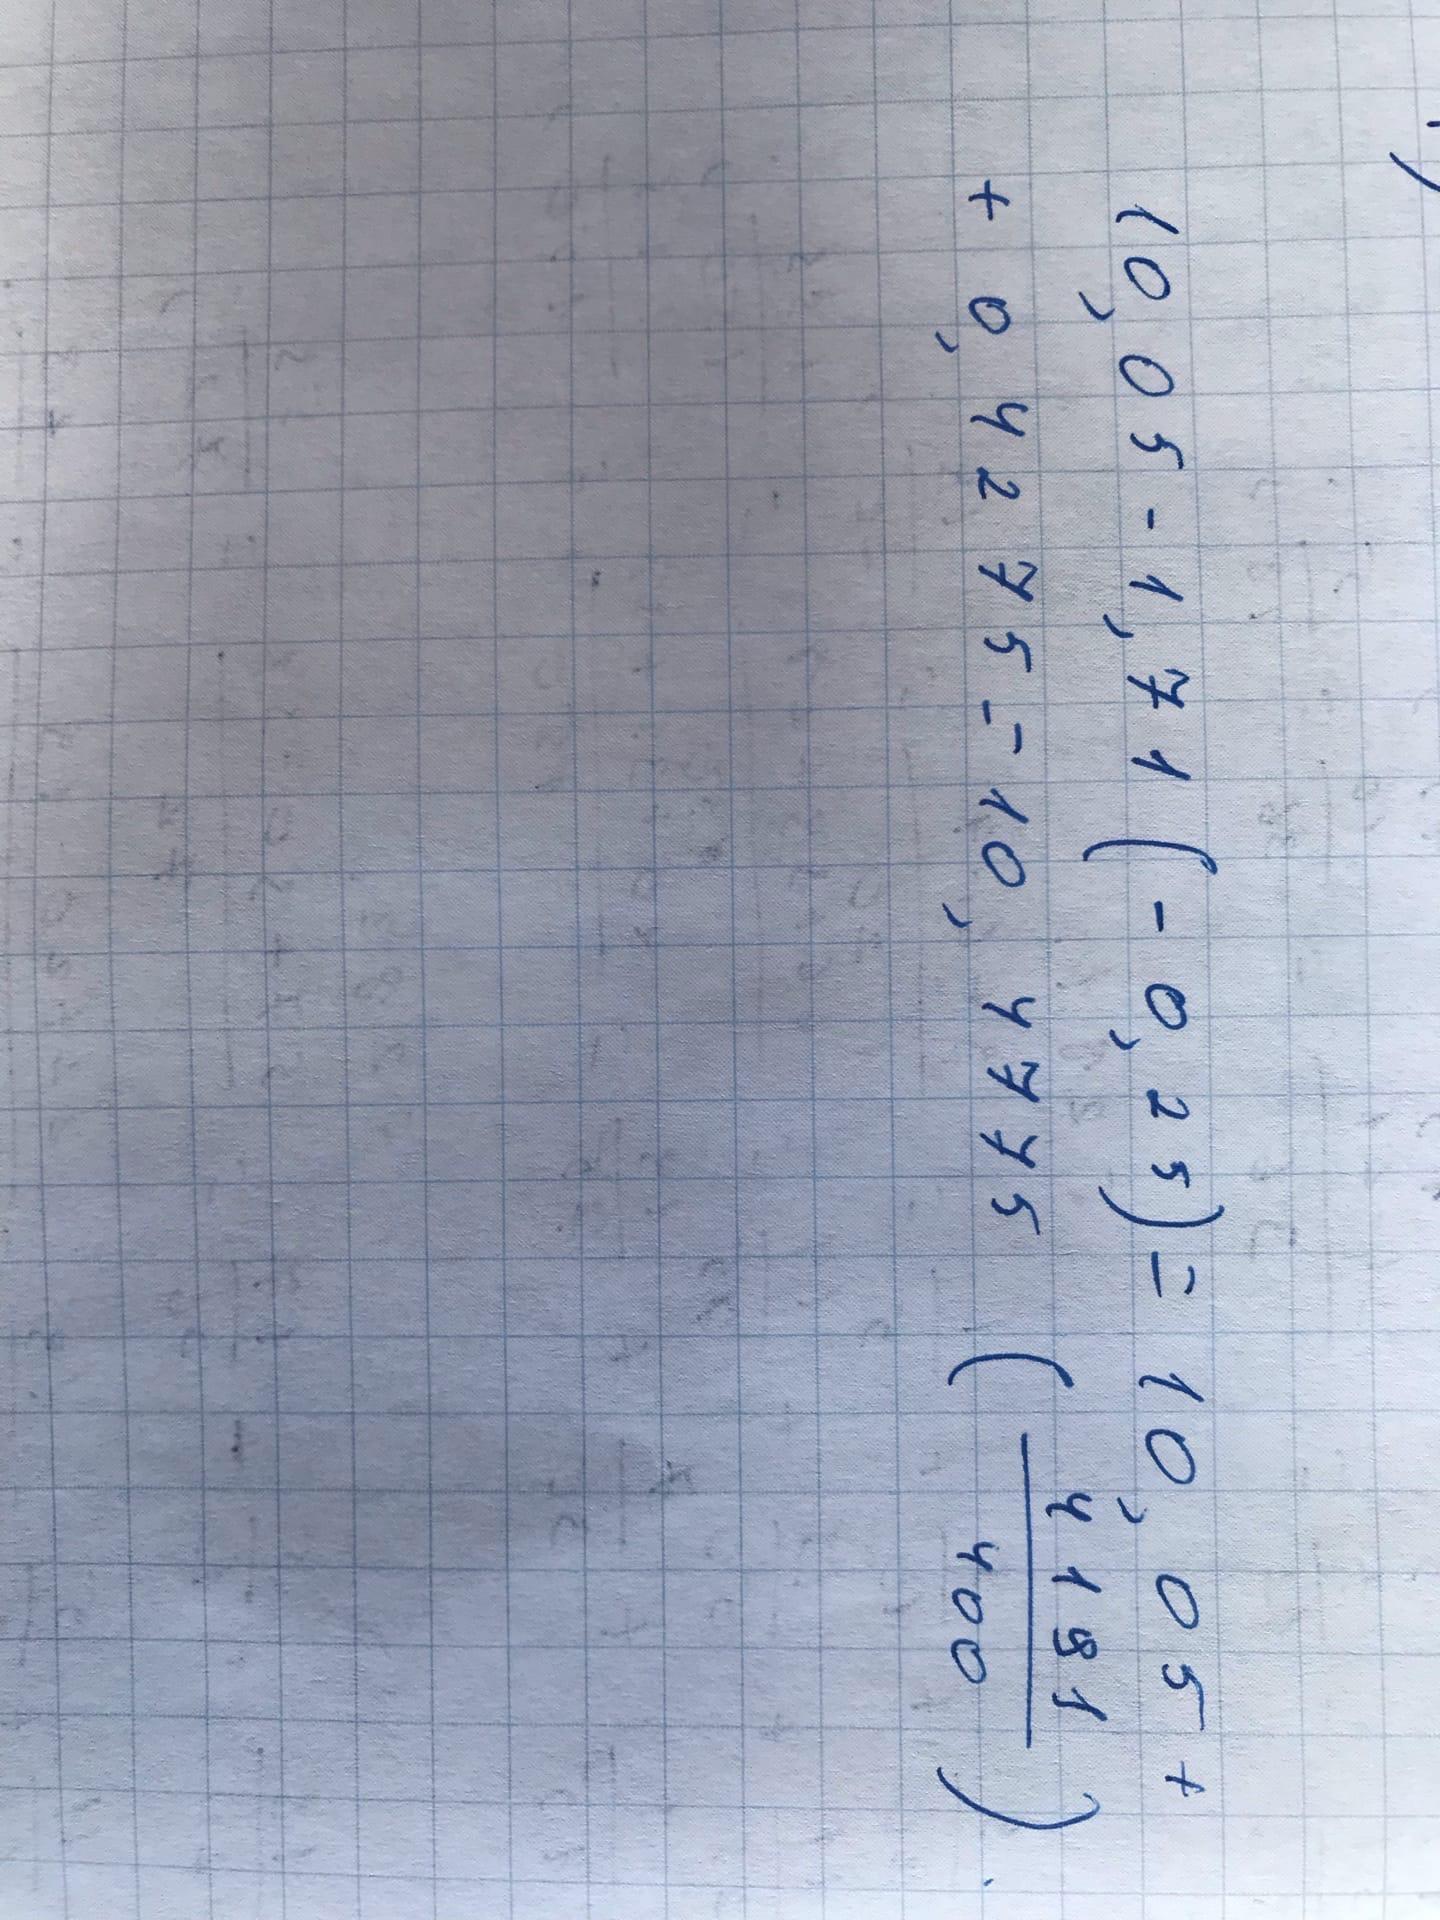 10,05-1,71(-0,25)=10,05+
+0,4275=10,4775 (4191/400)